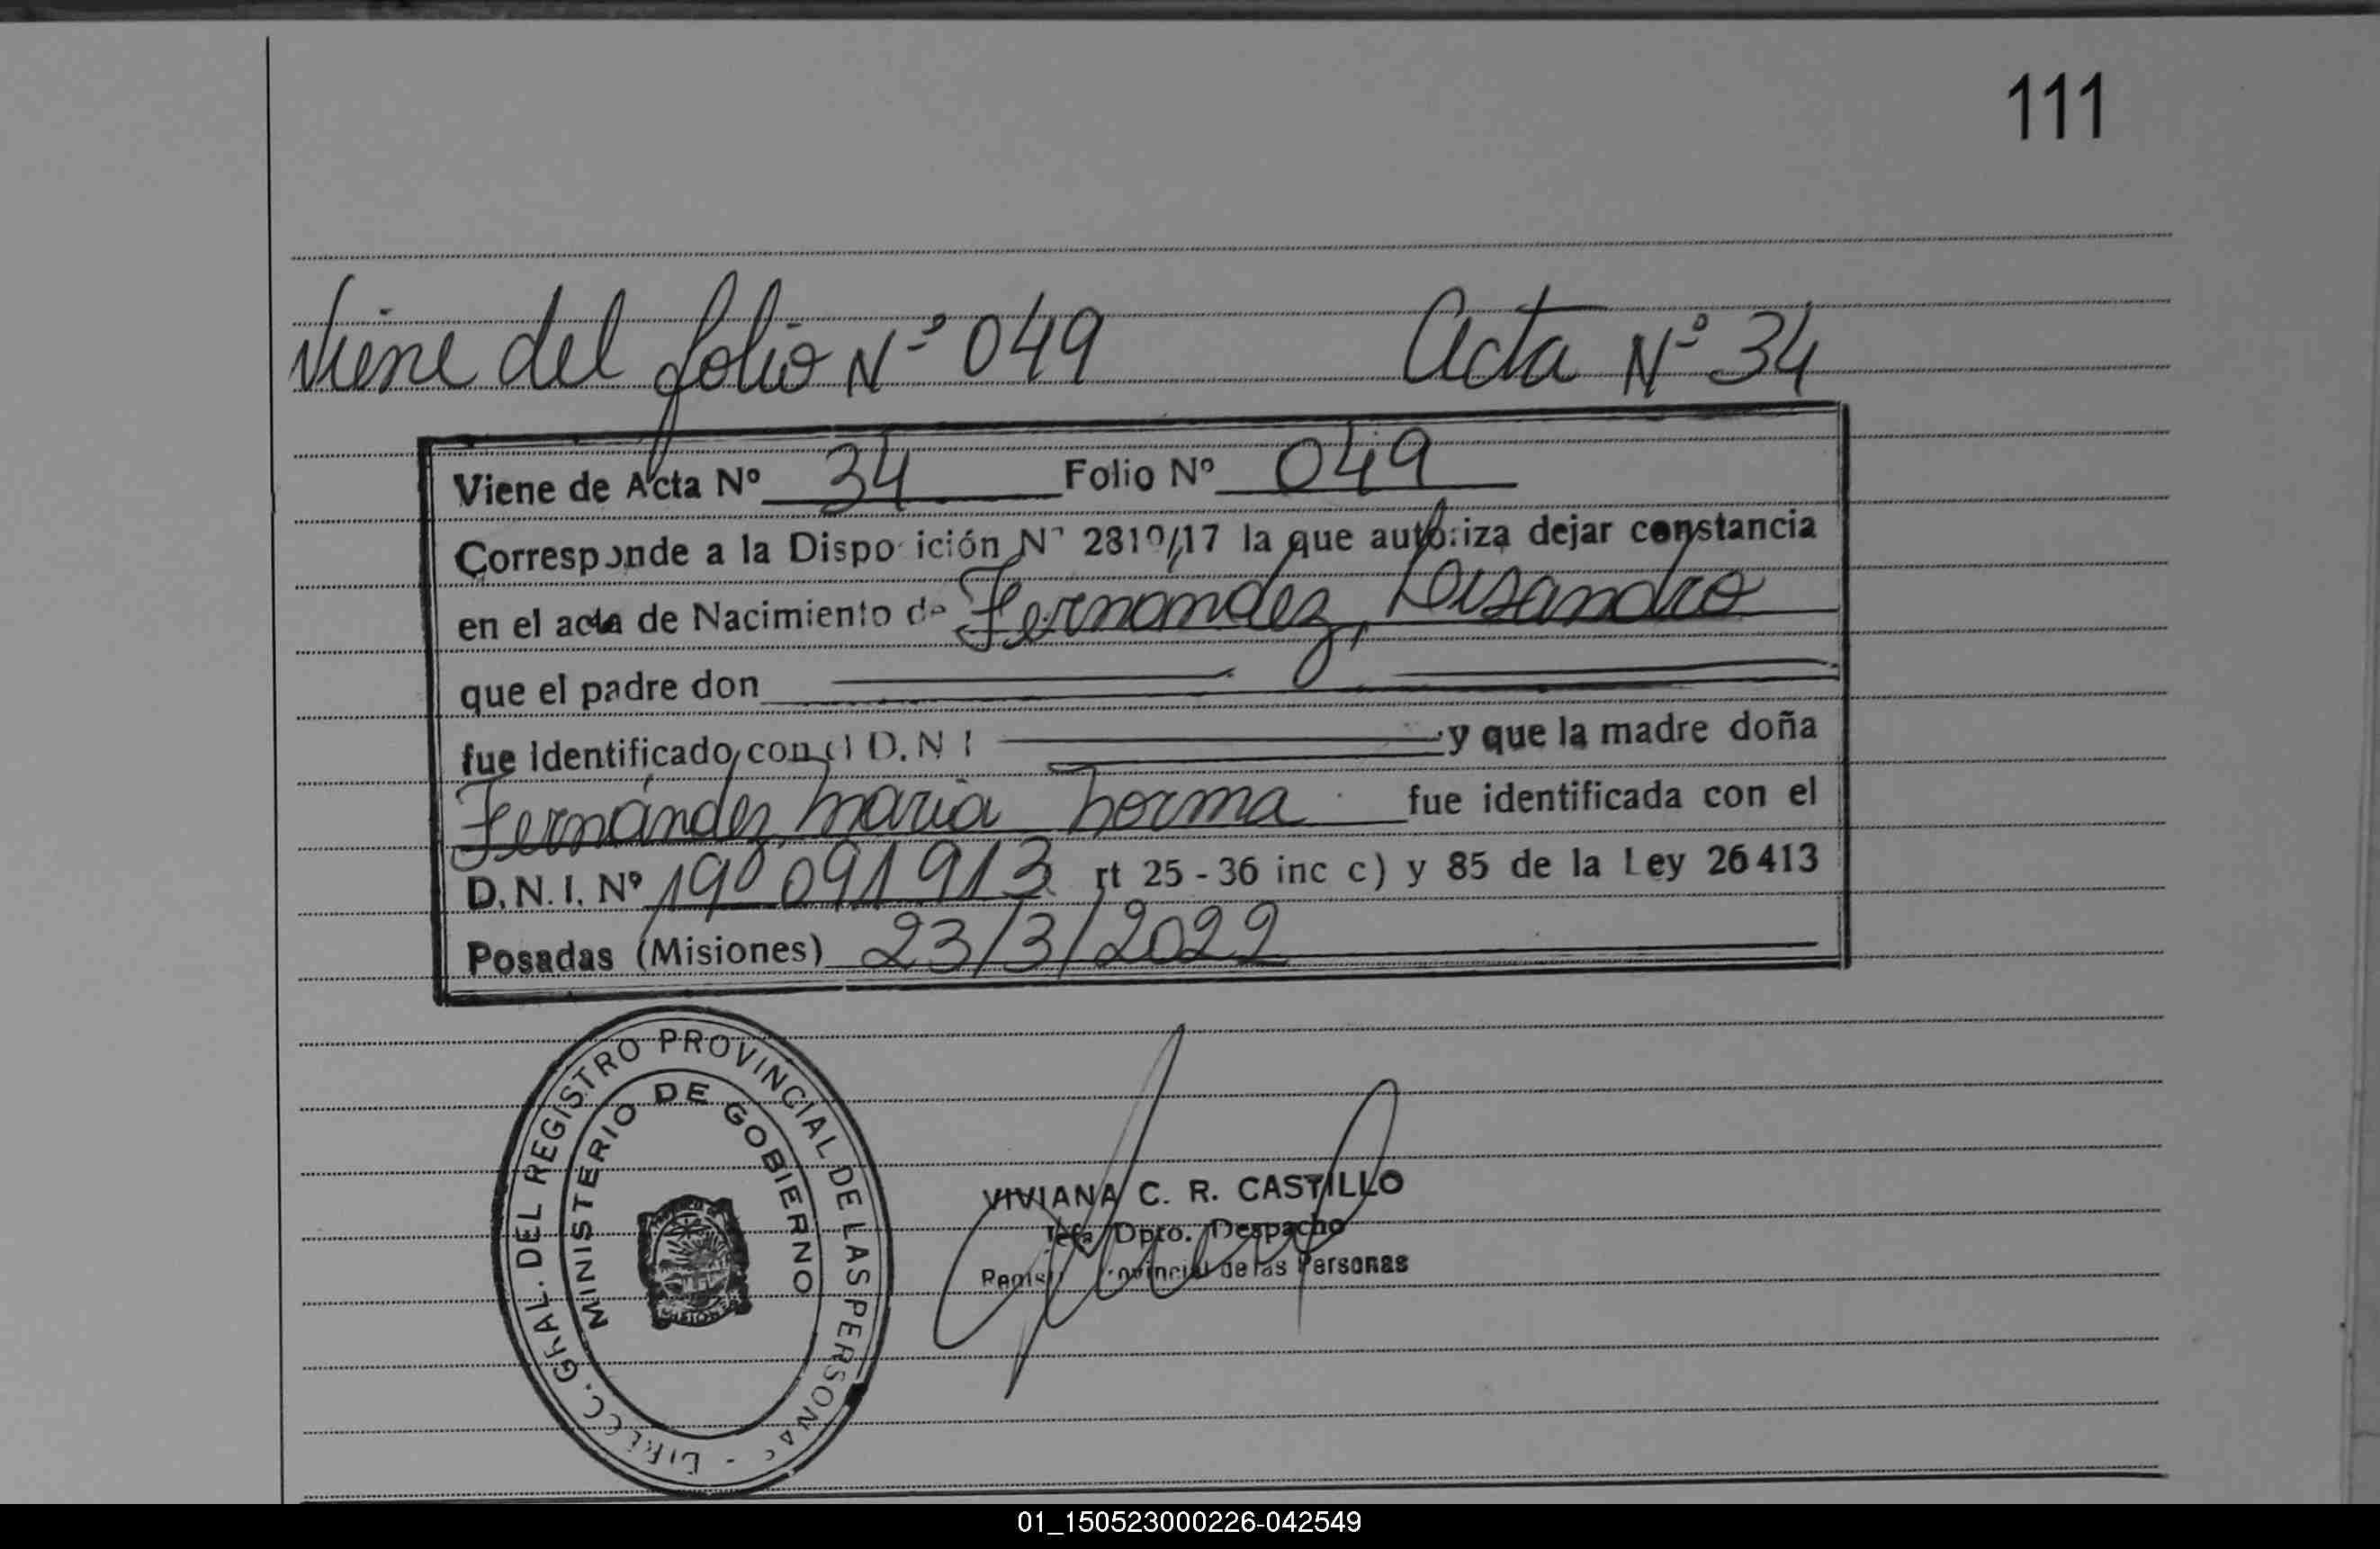 111
Viene del folio Nº 049 Acta Nº 34
Viene de Acta Nº 34 Folio Nº 049
Corresponde a la Disposición Nº 2810/17 la que autoriza dejar constancia
en el acta de Nacimiento de Fernandez, Lisandro
que el padre don
fue identificado con el D.N.I y que la madre doña
Fernández, Maria Norma fue identificada con el
D.N.I. Nº 19.091.913 rt 25 - 36 inc c) y 85 de la Ley 26413
Posadas (Misiones) 23/3/2022
DIRECC. GRAL. DEL REGISTRO PROVINCIAL DE LAS PERSONAS -
MINISTERIO DE GOBIERNO
MISIONES
VIVIANA C. R. CASTILLO
Jefa Dpto. Despacho
Registro Provincial de las Personas
01_150523000226-042549